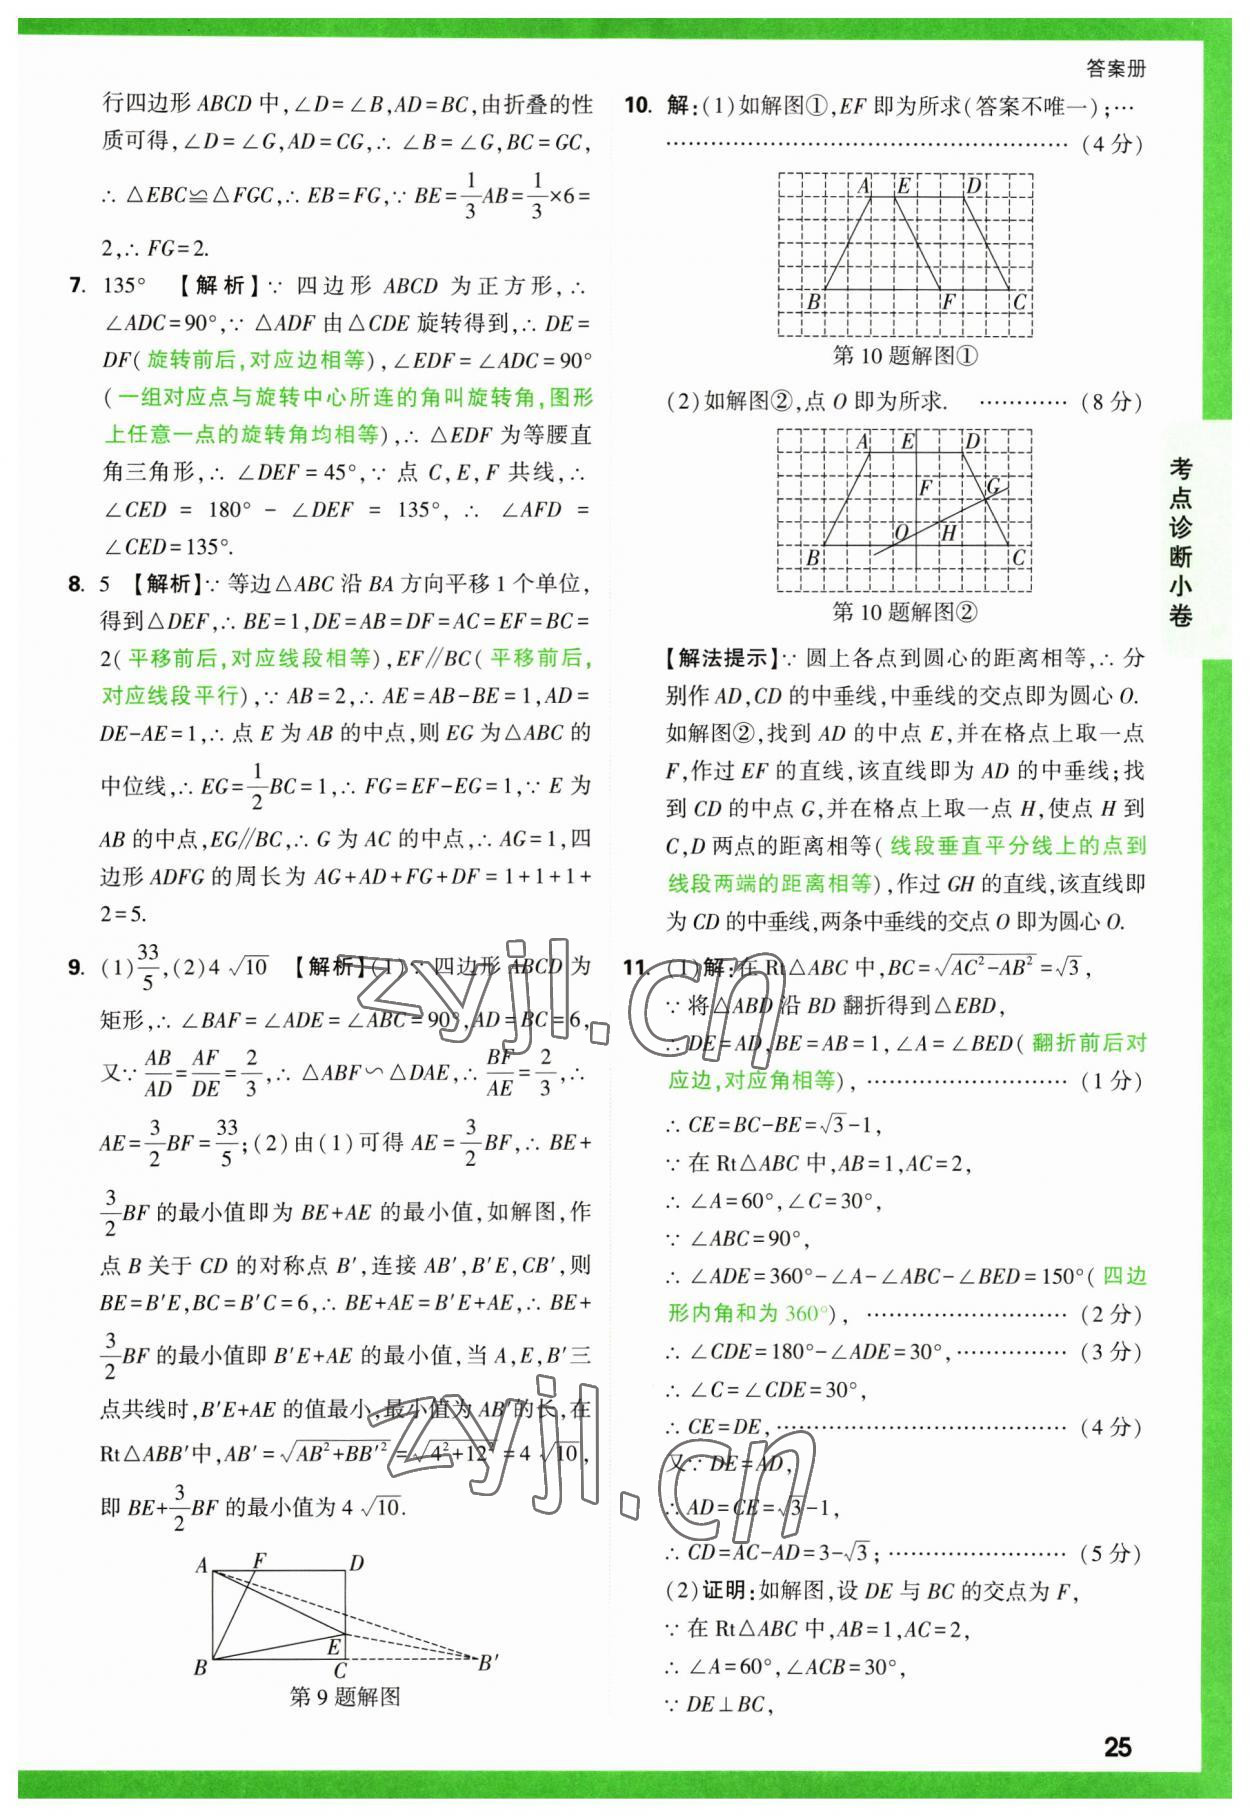 答案册
行四边形 ABCD 中,∠D=∠B,AD=BC,由折叠的性
质可得,∠D=∠G,AD=CG,∴ ∠B=∠G,BC=GC,
∴ △EBC≌△FGC,∴ EB=FG,∵ BE=1/3AB=1/3×6=
2,∴ FG=2.
7. 135° 【解析】∵ 四边形 ABCD 为正方形,∴
∠ADC=90°,∵ △ADF 由△CDE 旋转得到,∴ DE=
DF(旋转前后,对应边相等),∠EDF=∠ADC=90°
(一组对应点与旋转中心所连的角叫旋转角,图形
上任意一点的旋转角均相等),∴ △EDF 为等腰直
角三角形,∴ ∠DEF=45°,∵ 点 C,E,F 共线,∴
∠CED = 180° - ∠DEF = 135°, ∴ ∠AFD =
∠CED=135°.
8. 5 【解析】∵ 等边△ABC 沿 BA 方向平移 1 个单位,
得到△DEF,∴ BE=1,DE=AB=DF=AC=EF=BC=
2(平移前后,对应线段相等),EF∥BC(平移前后,
对应线段平行),∵ AB=2,∴ AE=AB-BE=1,AD=
DE-AE=1,∴ 点 E 为 AB 的中点,则 EG 为△ABC 的
中位线,∴ EG=1/2BC=1,∴ FG=EF-EG=1,∵ E 为
AB 的中点,EG∥BC,∴ G 为 AC 的中点,∴ AG=1,四
边形 ADFG 的周长为 AG+AD+FG+DF=1+1+1+
2=5.
9. (1)33/5,(2)4√10 【解析】(1)∵ 四边形 ABCD 为
矩形,∴ ∠BAF=∠ADE=∠ABC=90°,AD=BC=6,
又∵ AB/AD=AF/DE=2/3,∴ △ABF∽△DAE,∴ BF/AE=2/3,∴
AE=3/2BF=33/5;(2)由(1)可得 AE=3/2BF,∴ BE+
3/2BF 的最小值即为 BE+AE 的最小值,如解图,作
点 B 关于 CD 的对称点 B′,连接 AB′,B′E,CB′,则
BE=B′E,BC=B′C=6,∴ BE+AE=B′E+AE,∴ BE+
3/2BF 的最小值即 B′E+AE 的最小值,当 A,E,B′三
点共线时,B′E+AE 的值最小,最小值为 AB′的长,在
Rt△ABB′中,AB′=√(AB²+BB′²)=√(4²+12²)=4√10,
即 BE+3/2BF 的最小值为 4√10.
A F D
E
B C B′
第 9 题解图
10. 解:(1)如解图①,EF 即为所求(答案不唯一);…
………………………………………… (4 分)
A E D
B F C
第 10 题解图①
(2)如解图②,点 O 即为所求. ………… (8 分)
A E D
F G
O H
B C
第 10 题解图②
【解法提示】∵ 圆上各点到圆心的距离相等,∴ 分
别作 AD,CD 的中垂线,中垂线的交点即为圆心 O.
如解图②,找到 AD 的中点 E,并在格点上取一点
F,作过 EF 的直线,该直线即为 AD 的中垂线;找
到 CD 的中点 G,并在格点上取一点 H,使点 H 到
C,D 两点的距离相等(线段垂直平分线上的点到
线段两端的距离相等),作过 GH 的直线,该直线即
为 CD 的中垂线,两条中垂线的交点 O 即为圆心 O.
11. (1)解:在 Rt△ABC 中,BC=√(AC²-AB²)=√3,
∵ 将△ABD 沿 BD 翻折得到△EBD,
∴ DE=AD,BE=AB=1,∠A=∠BED(翻折前后对
应边,对应角相等), ……………………… (1 分)
∴ CE=BC-BE=√3-1,
∵ 在 Rt△ABC 中,AB=1,AC=2,
∴ ∠A=60°,∠C=30°,
∵ ∠ABC=90°,
∴ ∠ADE=360°-∠A-∠ABC-∠BED=150°(四边
形内角和为 360°), ……………………… (2 分)
∴ ∠CDE=180°-∠ADE=30°,…………… (3 分)
∴ ∠C=∠CDE=30°,
∴ CE=DE,………………………………… (4 分)
又∵ DE=AD,
∴ AD=CE=√3-1,
∴ CD=AC-AD=3-√3;…………………… (5 分)
(2)证明:如解图,设 DE 与 BC 的交点为 F,
∵ 在 Rt△ABC 中,AB=1,AC=2,
∴ ∠A=60°,∠ACB=30°,
∵ DE⊥BC,
考点诊断小卷
25
zyjl.cn
zyjl.cn